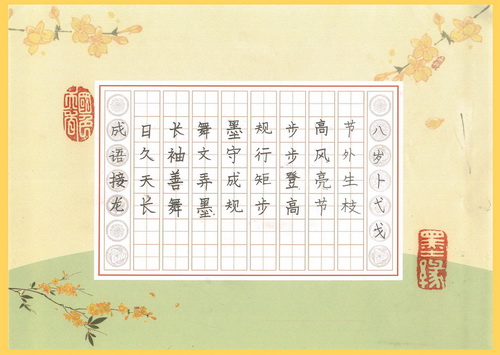 國色天香
成语接龙
日久天长
长袖善舞
舞文弄墨
墨守成规
规行矩步
步步登高
高风亮节
节外生枝
八岁卜弋戈
墨缘